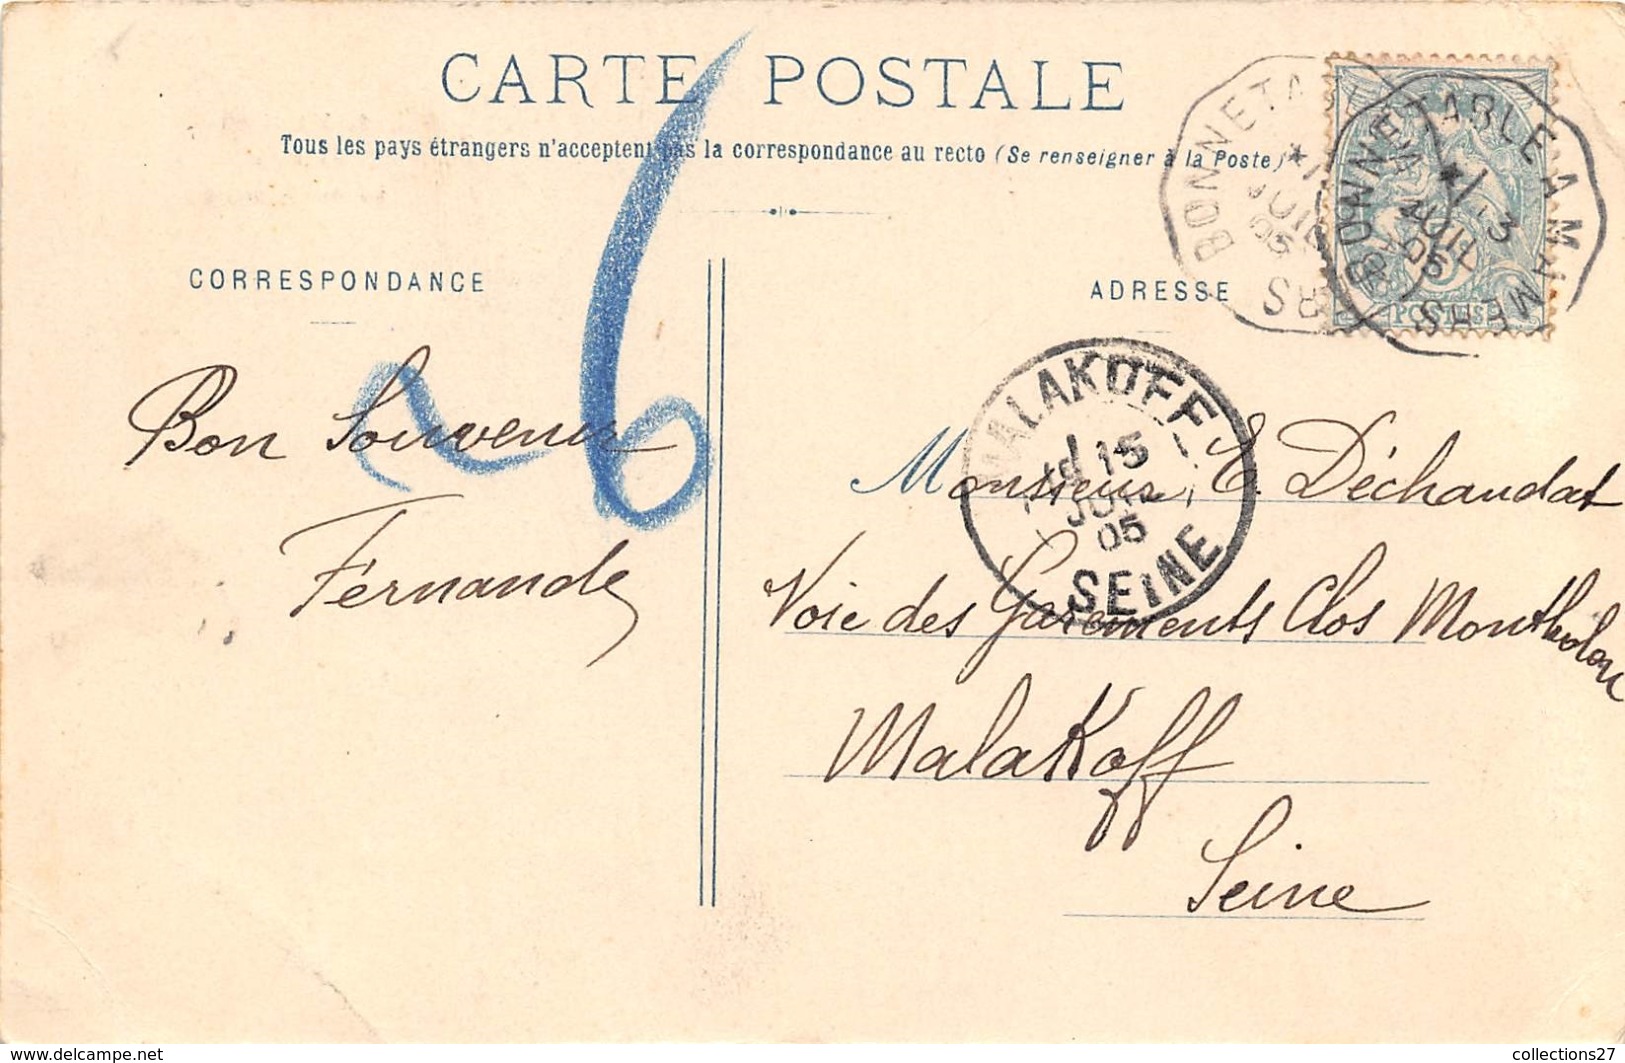 CARTE POSTALE
Tous les pays étrangers n'acceptent pas la correspondance au recto (Se renseigner à la Poste)
CORRESPONDANCE
ADRESSE
BONNETA
JUIL
05
RS
BONNETABLE A MAMERS
13
JUIL
05
POSTES
MALAKOFF
15
JUIL
05
SEINE
Bon Souvenir
Fernande
6
Monsieur E. Déchaudat
Voie des Garements Clos Montholon
Malakoff
Seine
www.delcampe.net
collections27